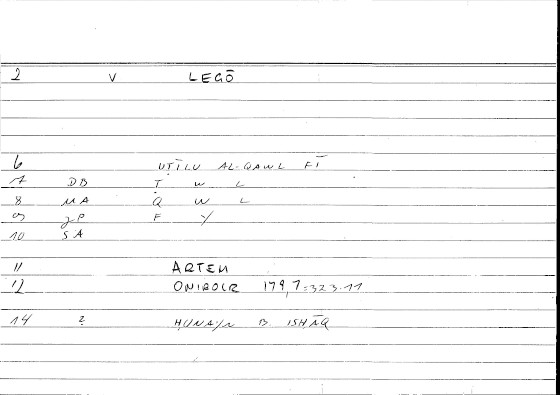 2 V LEGŌ
6 UṬĪLU AL-QAWL FĪ
7 DB Ṭ W L
8 MA Q W L
9 JP F Y
10 SA
11 ARTEM
12 ONIROCR 179,7=323.11
14 2 ḤUNAYN B ISḤĀQ